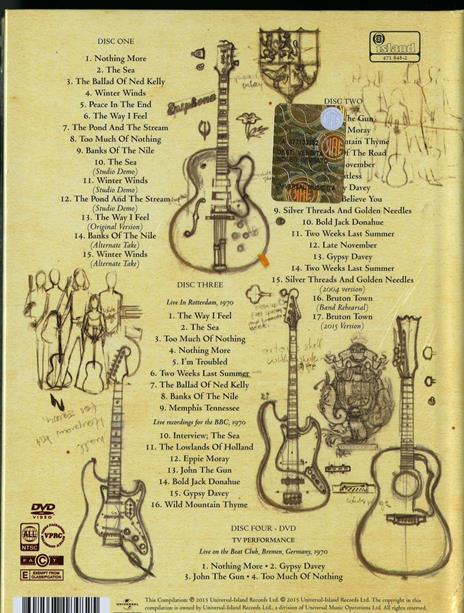 DISC ONE
1. Nothing More
2. The Sea
3. The Ballad Of Ned Kelly
4. Winter Winds
5. Peace In The End
6. The Way I Feel
7. The Pond And The Stream
8. Too Much Of Nothing
9. Banks Of The Nile
10. The Sea
(Studio Demo)
11. Winter Winds
(Studio Demo)
12. The Pond And The Stream
(Studio Demo)
13. The Way I Feel
(Original Version)
14. Banks Of The Nile
(Alternate Take)
15. Winter Winds
(Alternate Take)
Epiphone
island
471 848-2
DISC TWO
The Gun
Moray
tain Thyme
Of The Road
ovember
stless
y Davey
Believe You
9. Silver Threads And Golden Needles
10. Bold Jack Donahue
11. Two Weeks Last Summer
12. Late November
13. Gypsy Davey
14. Two Weeks Last Summer
15. Silver Threads And Golden Needles
(2004 version)
16. Bruton Town
(Band Rehearsal)
17. Bruton Town
(2015 Version)
DISC THREE
Live In Rotterdam, 1970
1. The Way I Feel
2. The Sea
3. Too Much Of Nothing
4. Nothing More
5. I'm Troubled
6. Two Weeks Last Summer
7. The Ballad Of Ned Kelly
8. Banks Of The Nile
9. Memphis Tennessee
Live recordings for the BBC, 1970
10. Interview; The Sea
11. The Lowlands Of Holland
12. Eppie Moray
13. John The Gun
14. Bold Jack Donahue
15. Gypsy Davey
16. Wild Mountain Thyme
DISC FOUR - DVD
TV PERFORMANCE
Live on the Beat Club, Bremen, Germany, 1970
1. Nothing More • 2. Gypsy Davey
3. John The Gun • 4. Too Much Of Nothing
DVD
VIDEO
ALL
NTSC
VPRC
FACT
E EXEMPT FROM CLASSIFICATION
UNIVERSAL
This Compilation ℗ 2015 Universal-Island Records Ltd. © 2015 Universal-Island Records Ltd. The copyright in this
compilation is owned by Universal-Island Records Ltd., a division of Universal Music Operations Ltd. All rights reserved.